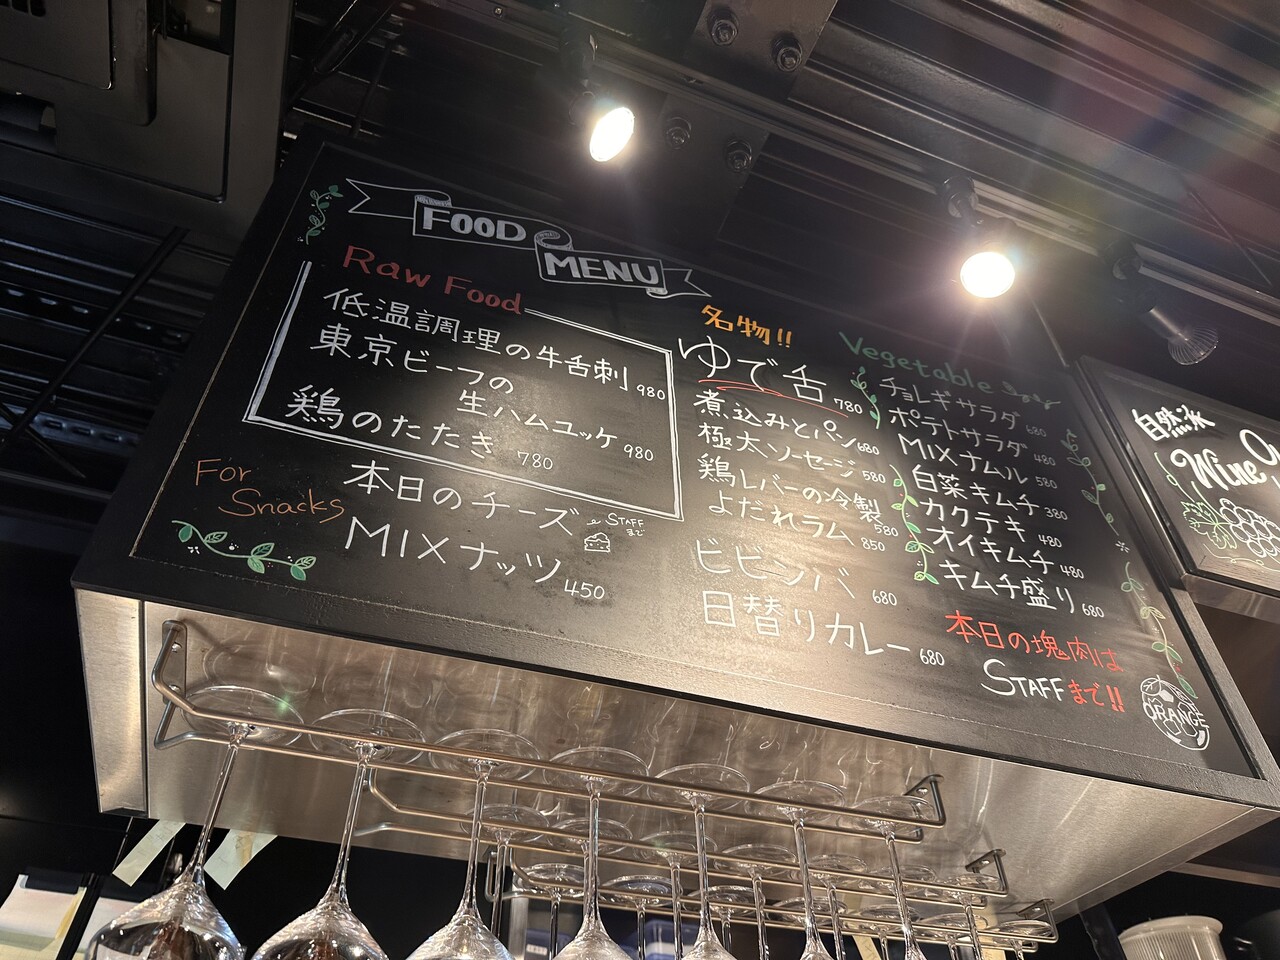 FOOD
MENU
Raw Food
低温調理の牛舌刺 980
東京ビーフの
生ハムユッケ 980
鶏のたたき 780
For
Snacks
本日のチーズ
STAFF
まで
MIXナッツ 450
名物!!
ゆで舌 780
煮込みとパン 680
極太ソーセージ 580
鶏レバーの冷製 580
よだれラム 850
ビビンバ 680
日替りカレー 680
Vegetable
チョレギサラダ 680
ポテトサラダ 480
MIXナムル 580
白菜キムチ 380
カクテキ 480
オイキムチ 480
キムチ盛り 680
本日の塊肉は
STAFFまで!!
ORANGE
自然派
Wine